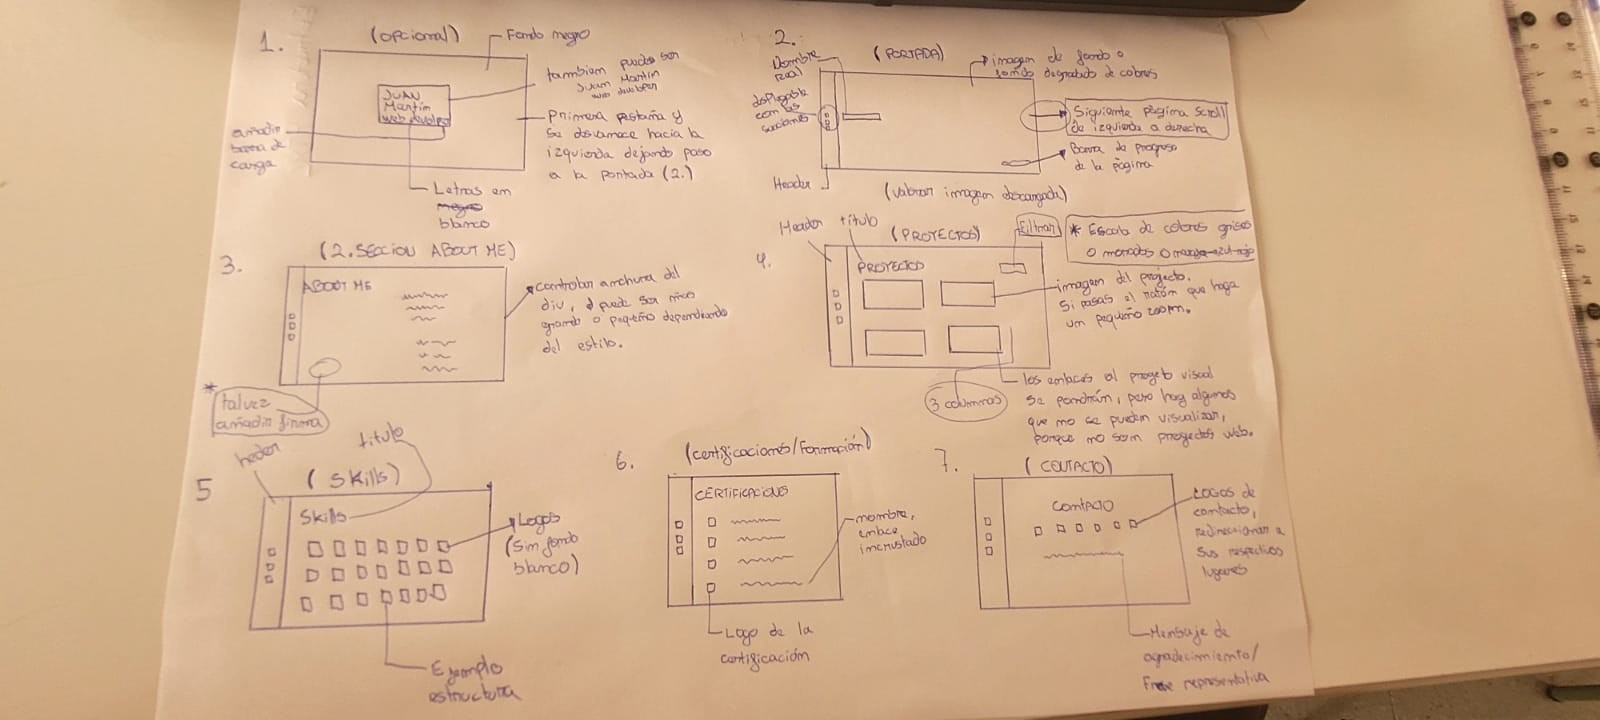 1.
(opcional)
Fondo negro
JUAN
Martín
web develper
tambiem puede ser
Juan Martin
web develper
añadir
barra de
carga
Primera pestaña y
se desvamece hacia la
izquierda dejando paso
a la portada (2.)
Letras em
negro
blanco
2.
(PORTADA)
Nombre
real
desplegable
com las
secciones
imagem de fondo o
fondo degradado de colores
Siguiente página scroll
de izquierda a derecha
Barra de progreso
de la página
Header
(valorar imagem descargada)
3.
(2. SECCION ABOUT ME)
ABOUT ME
controlar anchura del
div, puede ser más
grande o pequeño dependiendo
del estilo.
*
talvez
añadir firma
4.
Header
título
(PROYECTOS)
Filtrar
* Escala de colores grises
o morados o
PROYECTOS
imagem del projecto.
Si pasas el ratón que haga
um pequeño zoom.
3 columnas
los emlaces al progeto visual
se pondrán, pero hay algunos
que mo se pueden visualizar,
porque mo som proyectos web.
5
heder
título
(Skills)
Skills
Logos
(Sim fondo
blanco)
Ejemplo
estructura
6.
(certificaciones/Formación)
CERTIFICACIONES
mombre,
emlace
incrustado
Logo de la
certificación
7.
(CONTACTO)
Comtacto
LOGOS de
contacto,
redireccionar a
sus respectivos
lugares
Mensaje de
agradecimiento/
Frase representativa